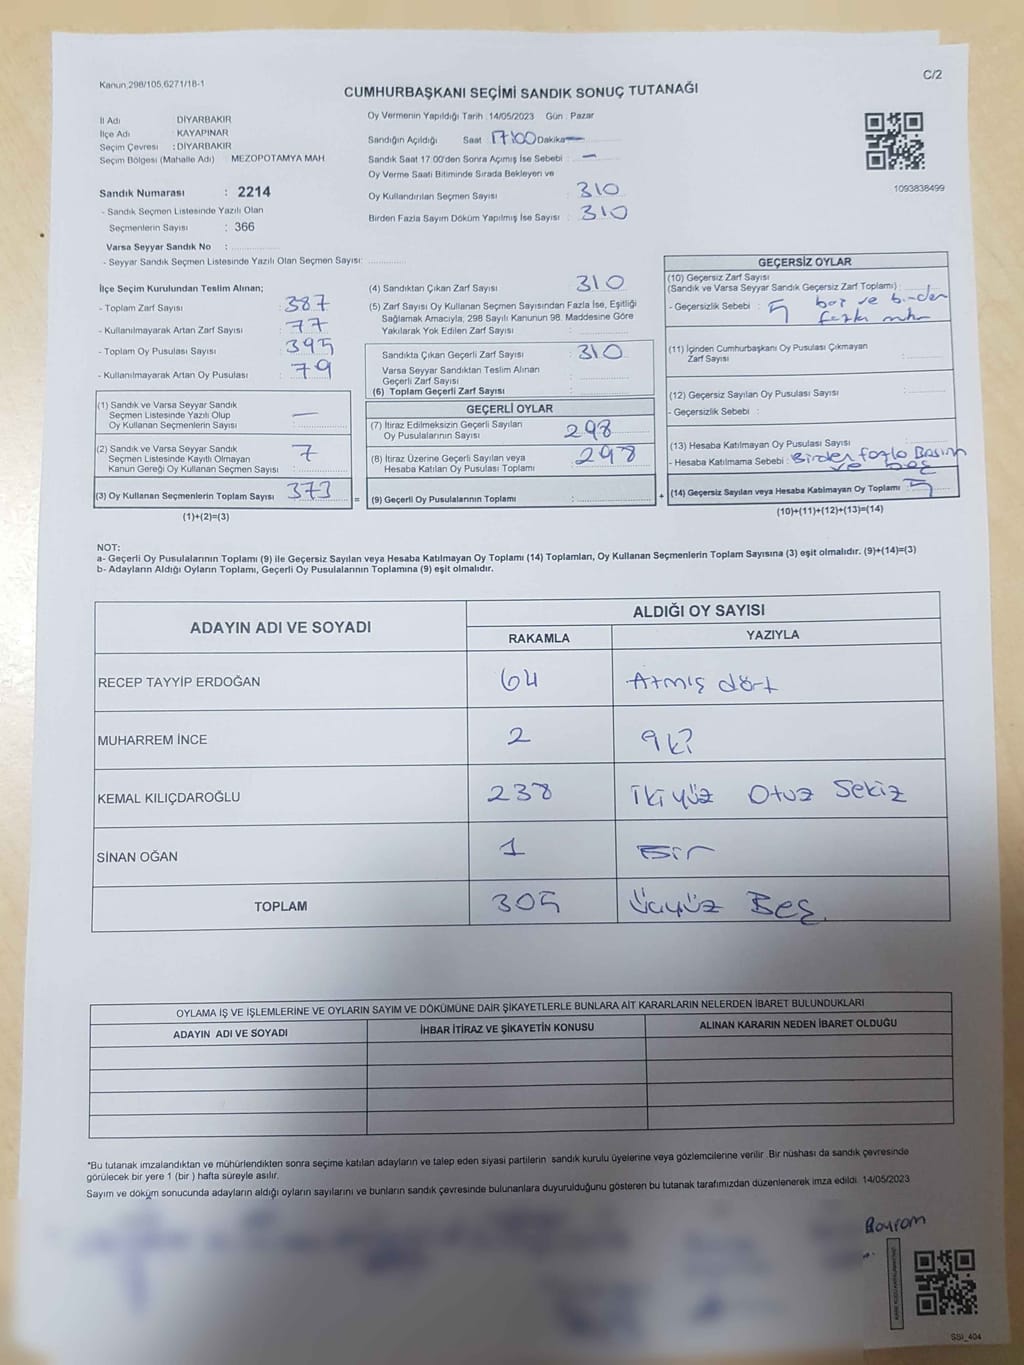 Kanun,298/105,6271/18-1
C/2
CUMHURBAŞKANI SEÇİMİ SANDIK SONUÇ TUTANAĞI
İl Adı : DİYARBAKIR
İlçe Adı : KAYAPINAR
Seçim Çevresi : DİYARBAKIR
Seçim Bölgesi (Mahalle Adı) : MEZOPOTAMYA MAH
Sandık Numarası : 2214
- Sandık Seçmen Listesinde Yazılı Olan
Seçmenlerin Sayısı : 366
Varsa Seyyar Sandık No :
- Seyyar Sandık Seçmen Listesinde Yazılı Olan Seçmen Sayısı:
Oy Vermenin Yapıldığı Tarih : 14/05/2023 Gün : Pazar
Sandığın Açıldığı Saat 17:00 Dakika —
Sandık Saat 17:00'den Sonra Açımış İse Sebebi : —
Oy Verme Saati Bitiminde Sırada Bekleyen ve
Oy Kullandırılan Seçmen Sayısı : 310
Birden Fazla Sayım Döküm Yapılmış İse Sayısı : 310
1093838499
İlçe Seçim Kurulundan Teslim Alınan;
- Toplam Zarf Sayısı : 387
- Kullanılmayarak Artan Zarf Sayısı : 77
- Toplam Oy Pusulası Sayısı : 395
- Kullanılmayarak Artan Oy Pusulası : 79
(1) Sandık ve Varsa Seyyar Sandık
Seçmen Listesinde Yazılı Olup
Oy Kullanan Seçmenlerin Sayısı : —
(2) Sandık ve Varsa Seyyar Sandık
Seçmen Listesinde Kayıtlı Olmayan
Kanun Gereği Oy Kullanan Seçmen Sayısı : 7
(3) Oy Kullanan Seçmenlerin Toplam Sayısı : 373
(1)+(2)=(3)
(4) Sandıktan Çıkan Zarf Sayısı : 310
(5) Zarf Sayısı Oy Kullanan Seçmen Sayısından Fazla İse, Eşitliği
Sağlamak Amacıyla, 298 Sayılı Kanunun 98. Maddesine Göre
Yakılarak Yok Edilen Zarf Sayısı :
Sandıkta Çıkan Geçerli Zarf Sayısı : 310
Varsa Seyyar Sandıktan Teslim Alınan
Geçerli Zarf Sayısı :
(6) Toplam Geçerli Zarf Sayısı :
GEÇERLİ OYLAR
(7) İtiraz Edilmeksizin Geçerli Sayılan
Oy Pusulalarının Sayısı : 298
(8) İtiraz Üzerine Geçerli Sayılan veya
Hesaba Katılan Oy Pusulası Toplamı : 298
= (9) Geçerli Oy Pusulalarının Toplamı :
GEÇERSİZ OYLAR
(10) Geçersiz Zarf Sayısı
(Sandık ve Varsa Seyyar Sandık Geçersiz Zarf Toplamı) :
- Geçersizlik Sebebi : 5 boş ve birden
fazla
(11) İçinden Cumhurbaşkanı Oy Pusulası Çıkmayan
Zarf Sayısı :
(12) Geçersiz Sayılan Oy Pusulası Sayısı :
- Geçersizlik Sebebi :
(13) Hesaba Katılmayan Oy Pusulası Sayısı :
- Hesaba Katılmama Sebebi : Birden fazla Basım
ve boş
+ (14) Geçersiz Sayılan veya Hesaba Katılmayan Oy Toplamı : 5
(10)+(11)+(12)+(13)=(14)
NOT:
a- Geçerli Oy Pusulalarının Toplamı (9) ile Geçersiz Sayılan veya Hesaba Katılmayan Oy Toplamı (14) Toplamları, Oy Kullanan Seçmenlerin Toplam Sayısına (3) eşit olmalıdır. (9)+(14)=(3)
b- Adayların Aldığı Oyların Toplamı, Geçerli Oy Pusulalarının Toplamına (9) eşit olmalıdır.
ADAYIN ADI VE SOYADI
ALDIĞI OY SAYISI
RAKAMLA YAZIYLA
RECEP TAYYİP ERDOĞAN 64 Atmış dört
MUHARREM İNCE 2 iki
KEMAL KILIÇDAROĞLU 238 İkiyüz Otuz Sekiz
SİNAN OĞAN 1 Bir
TOPLAM 305 Üçyüz Beş
OYLAMA İŞ VE İŞLEMLERİNE VE OYLARIN SAYIM VE DÖKÜMÜNE DAİR ŞİKAYETLERLE BUNLARA AİT KARARLARIN NELERDEN İBARET BULUNDUKLARI
ADAYIN ADI VE SOYADI İHBAR İTİRAZ VE ŞİKAYETİN KONUSU ALINAN KARARIN NEDEN İBARET OLDUĞU
*Bu tutanak imzalandıktan ve mühürlendikten sonra seçime katılan adayların ve talep eden siyasi partilerin sandık kurulu üyelerine veya gözlemcilerine verilir .Bir nüshası da sandık çevresinde
görülecek bir yere 1 (bir ) hafta süreyle asılır.
Sayım ve döküm sonucunda adayların aldığı oyların sayılarını ve bunların sandık çevresinde bulunanlara duyurulduğunu gösteren bu tutanak tarafımızdan düzenlenerek imza edildi. 14/05/2023
Bayram
SSİ_404